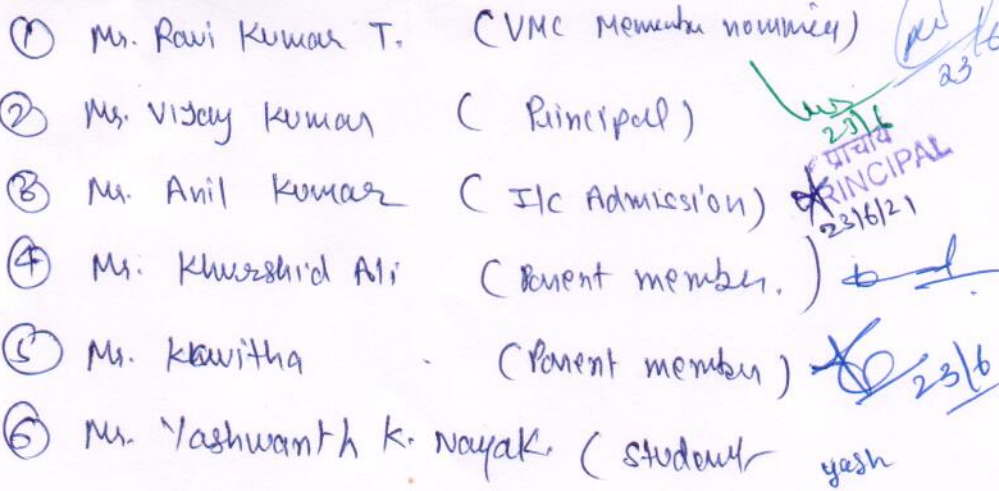 ① Mr. Ravi Kumar T. (VMC Member nominee) 23/6
② Mr. Vijay Kumar (Principal) 23/6
प्राचार्य
PRINCIPAL
③ Mr. Anil Kumar (I/c Admission) 23/6/21
④ Mr. Khurshid Ali (Parent member.)
⑤ Mr. Kavitha (Parent member) 23/6
⑥ Mr. Yashwanth K. Nayak. (Student yash